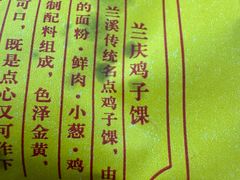 兰庆鸡子馃
兰溪传统名点鸡子馃，由
的面粉·鲜肉·小葱·鸡
制配料组成，色泽金黄，
可口，既是点心又可作下